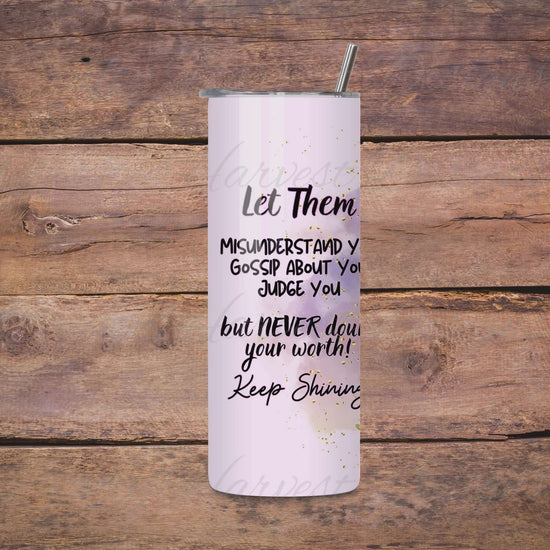 Let Them
MISUNDERSTAND Y
GOSSIP ABOUT YO
JUDGE YOU
but NEVER dou
your worth!
Keep Shining
Harvest
Harvest